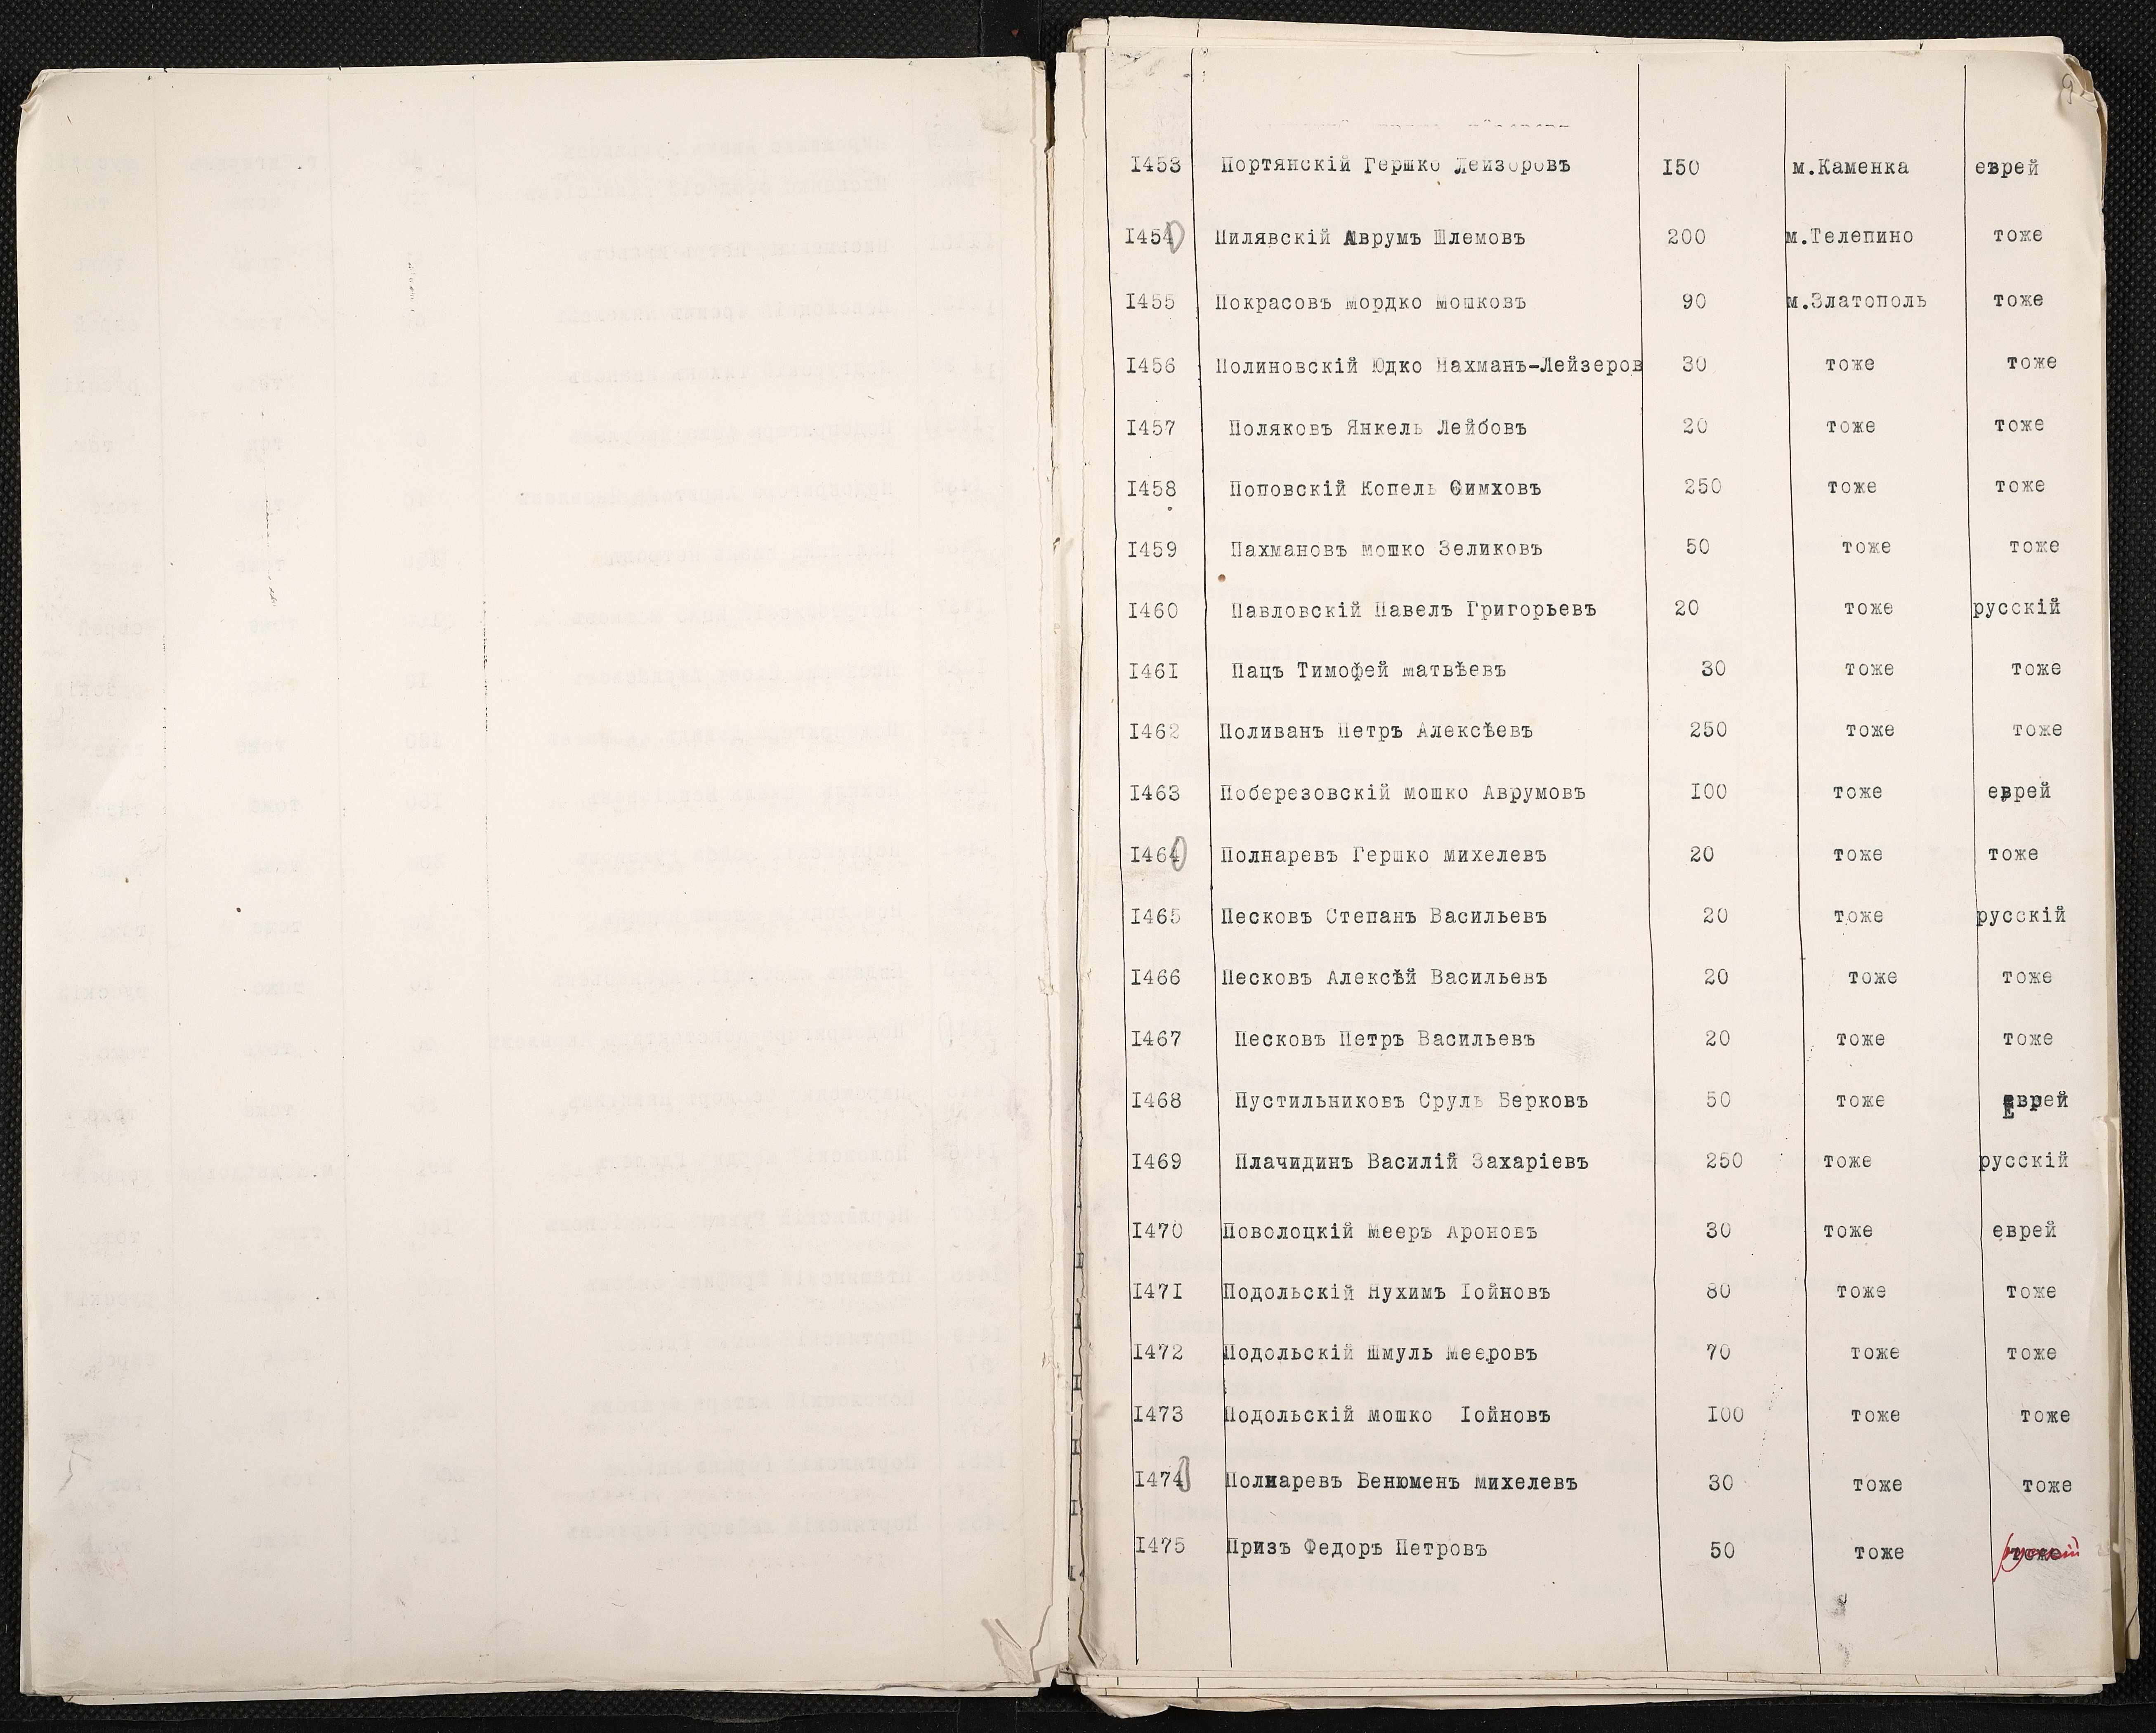 1453 Портянскій Гершко Лейзоровъ 150 м.Каменка еврей
1454 Пилявскій Аврумъ Шлемовъ 200 м.Телепино тоже
1455 Покрасовъ Мордко Мошковъ 90 м.Златополь тоже
1456 Полиновскій Юдко Нахманъ-Лейзеров 30 тоже тоже
1457 Поляковъ Янкель Лейбовъ 20 тоже тоже
1458 Поповскій Копель Симховъ 250 тоже тоже
1459 Пахмановъ Мошко Зеликовъ 50 тоже тоже
1460 Павловскій Павелъ Григорьевъ 20 тоже русскій
1461 Пацъ Тимофей Матвѣевъ 30 тоже тоже
1462 Поливанъ Петръ Алексѣевъ 250 тоже тоже
1463 Поберезовскій Мошко Аврумовъ 100 тоже еврей
1464 Полнаревъ Гершко Михелевъ 20 тоже тоже
1465 Песковъ Степанъ Васильевъ 20 тоже русскій
1466 Песковъ Алексѣй Васильевъ 20 тоже тоже
1467 Песковъ Петръ Васильевъ 20 тоже тоже
1468 Пустильниковъ Сруль Берковъ 50 тоже еврей
1469 Плачидинъ Василій Захаріевъ 250 тоже русскій
1470 Поволоцкій Мееръ Ароновъ 30 тоже еврей
1471 Подольскій Нухимъ Іойновъ 80 тоже тоже
1472 Подольскій Шмуль Мееровъ 70 тоже тоже
1473 Подольскій Мошко Іойновъ 100 тоже тоже
1474 Полнаревъ Бенюменъ Михелевъ 30 тоже тоже
1475 Призъ Федоръ Петровъ 50 тоже русскій